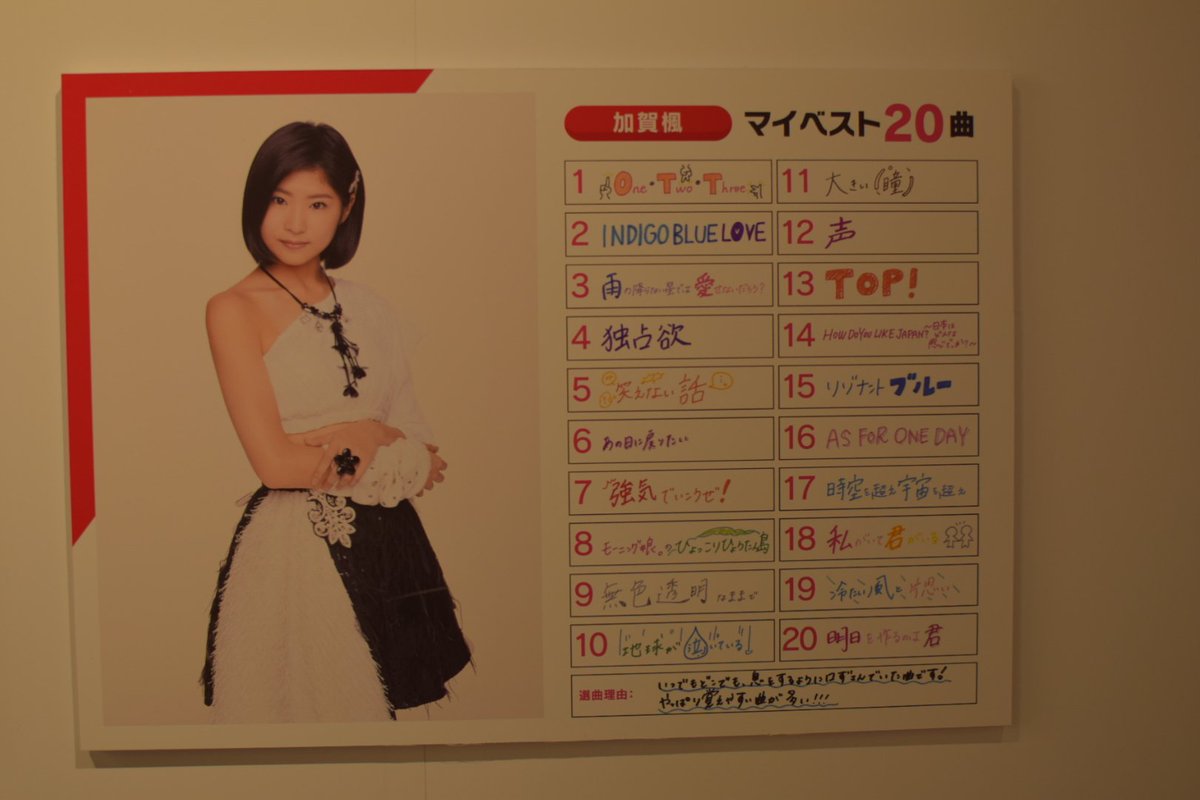 加賀楓
マイベスト20曲
1 One・Two・Three
2 INDIGO BLUE LOVE
3 雨の降らない星では愛せないだろう?
4 独占欲
5 笑えない話
6 あの日に戻りたい
7 強気でいこうぜ!
8 モーニング娘。のひょっこりひょうたん島
9 無色透明なままで
10 「地球が泣いている」
11 大きい瞳
12 声
13 TOP!
14 HOW DO YOU LIKE JAPAN? 〜日本はどんな感じでっか?〜
15 リゾナント ブルー
16 AS FOR ONE DAY
17 時空を超え宇宙を超え
18 私がいて君がいる
19 冷たい風と片思い
20 明日を作るのは君
選曲理由:
いつでもどこでも、息をするように口ずさんでいた曲です!
やっぱり覚えやすい曲が多い!!!